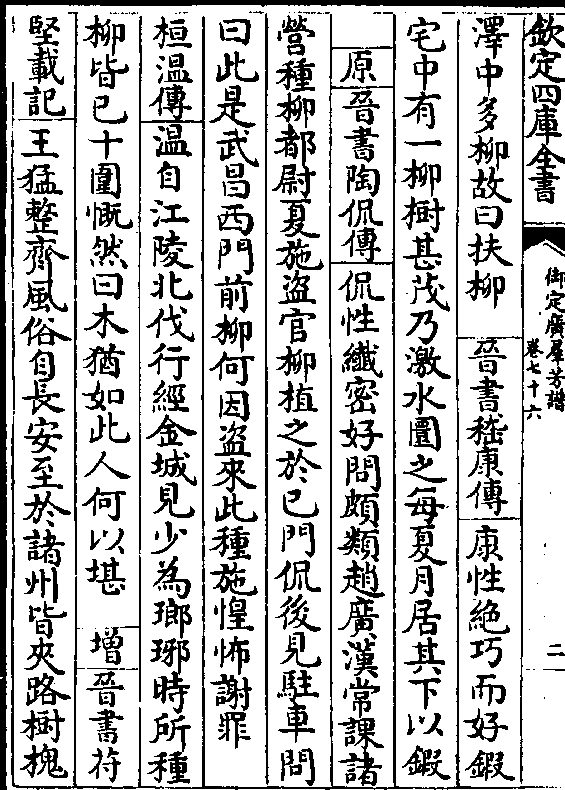 欽定四庫全書
御定廣羣芳譜
卷七十六
二
澤中多柳故曰扶柳 晉書嵇康傳 康性絶巧而好鍛
宅中有一柳樹甚茂乃激水圜之每夏月居其下以鍛
原 晉書陶侃傳 侃性纖密好問頗類趙廣漢常課諸
營種柳都尉夏施盜官柳植之於已門侃後見駐車問
曰此是武昌西門前柳何因盜來此種施惶怖謝罪
桓溫傳 溫自江陵北伐行經金城見少為瑯琊時所種
柳皆已十圍慨然曰木猶如此人何以堪 增 晉書苻
堅載記 王猛整齊風俗自長安至於諸州皆夾路樹槐